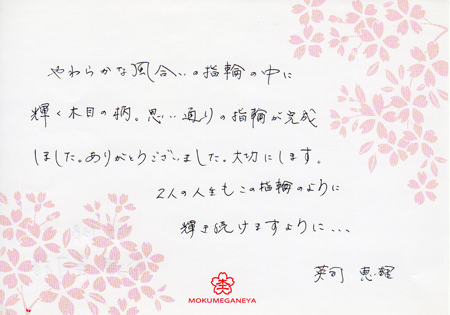 やわらかな風合いの指輪の中に
輝く木目の柄。思い通りの指輪が完成
しました。ありがとうございました。大切にします。
2人の人生もこの指輪のように
輝き続けますように...
恵
MOKUMEGANEYA